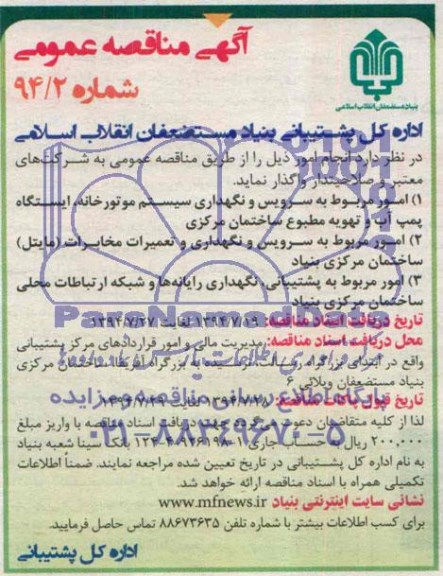 آگهی مناقصه عمومی
شماره ۹۴/۲
بنیاد مستضعفان انقلاب اسلامی
اداره کل پشتیبانی بنیاد مستضعفان انقلاب اسلامی
در نظر دارد انجام امور ذیل را از طریق مناقصه عمومی به شرکت‌های
معتبر و صلاحیتدار واگذار نماید.
۱) امور مربوط به سرویس و نگهداری سیستم موتورخانه، ایستگاه
پمپ آب و تهویه مطبوع ساختمان مرکزی
۲) امور مربوط به سرویس و نگهداری و تعمیرات مخابرات (مایتل)
ساختمان مرکزی بنیاد
۳) امور مربوط به پشتیبانی، نگهداری رایانه‌ها و شبکه ارتباطات محلی
ساختمان مرکزی بنیاد
ParsNamadData
تاریخ دریافت اسناد مناقصه: ۱۳۹۴/۷/۱۹ لغایت ۱۳۹۴/۷/۲۷
محل دریافت اسناد مناقصه: مدیریت مالی و امور قراردادهای مرکز پشتیبانی
واقع در ابتدای بزرگراه رسالت، نرسیده به بزرگراه آفریقا، ساختمان مرکزی
بنیاد مستضعفان ویلائی ۶
پایگاه اطلاع رسانی مناقصه و مزایده
تاریخ قبول پاکات مناقصه: ۱۳۹۴/۷/۲۸ لغایت
لذا از کلیه متقاضیان دعوت می‌گردد جهت دریافت اسناد مناقصه با واریز مبلغ
۰۲۱-۸۸۳۴۹۶۷۰-۵
۲۰۰,۰۰۰ ریال به حساب جاری بانک سینا شعبه بنیاد
به نام اداره کل پشتیبانی در تاریخ تعیین شده مراجعه نمایند. ضمناً اطلاعات
تکمیلی همراه با اسناد مناقصه ارائه خواهد شد.
نشانی سایت اینترنتی بنیاد www.mfnews.ir
برای کسب اطلاعات بیشتر با شماره تلفن ۸۸۶۷۳۶۳۵ تماس حاصل فرمایید.
اداره کل پشتیبانی